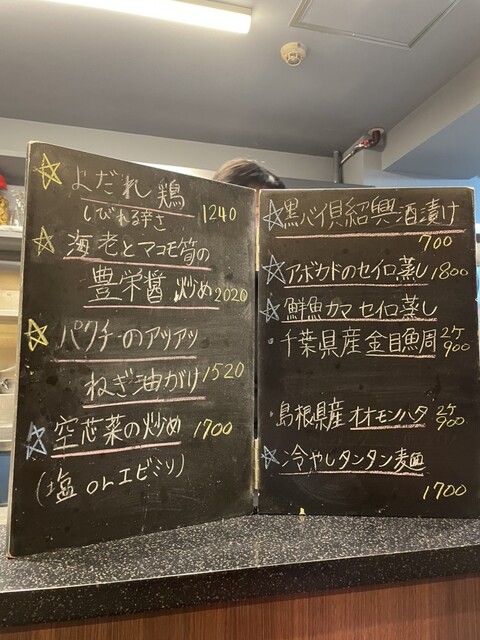 よだれ鶏
しびれる辛さ 1240
海老とマコモ筍の
豊栄醤 炒め 2020
パクチーのアツアツ
ねぎ油がけ 1520
空芯菜の炒め 1700
(塩 or エビミソ)
黒バイ貝紹興酒漬け
700
アボカドのセイロ蒸し 1800
鮮魚カマ セイロ蒸し
・千葉県産 金目魚周 2ケ 900
・島根県産 オオモンハタ 2ケ 900
冷やしタンタン麺
1700